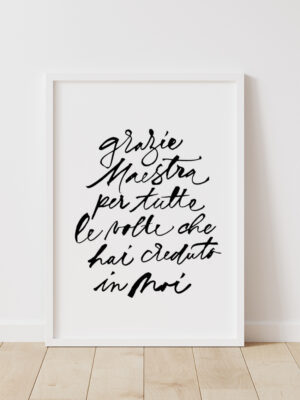 grazie
Maestra
per tutte
le volte che
hai creduto
in Noi